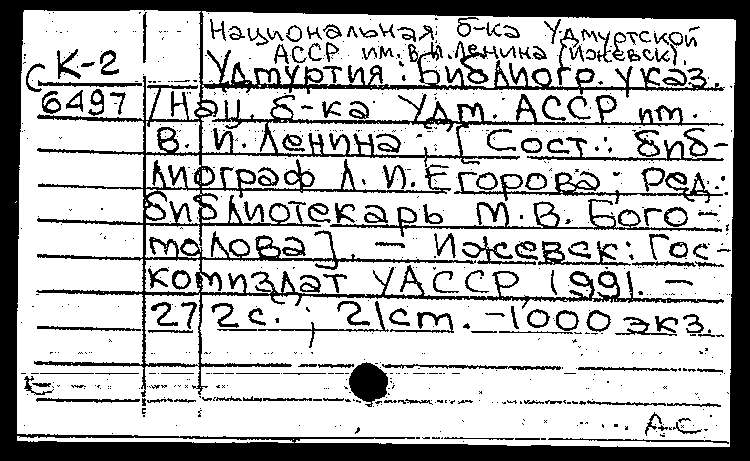 Национальная б-ка Удмуртской
АССР им. В.И. Ленина (Ижевск).
К-2
6497
Удмуртия : Библиогр. указ.
/ Нац. б-ка Удм. АССР им.
В. И. Ленина ; [Сост.: биб-
лиограф Л. И. Егорова ; Ред.:
библиотекарь М. В. Бого-
молова]. – Ижевск: Гос-
комиздат УАССР, 1991. –
272 с. ; 21 см. – 1000 экз.
А.С.